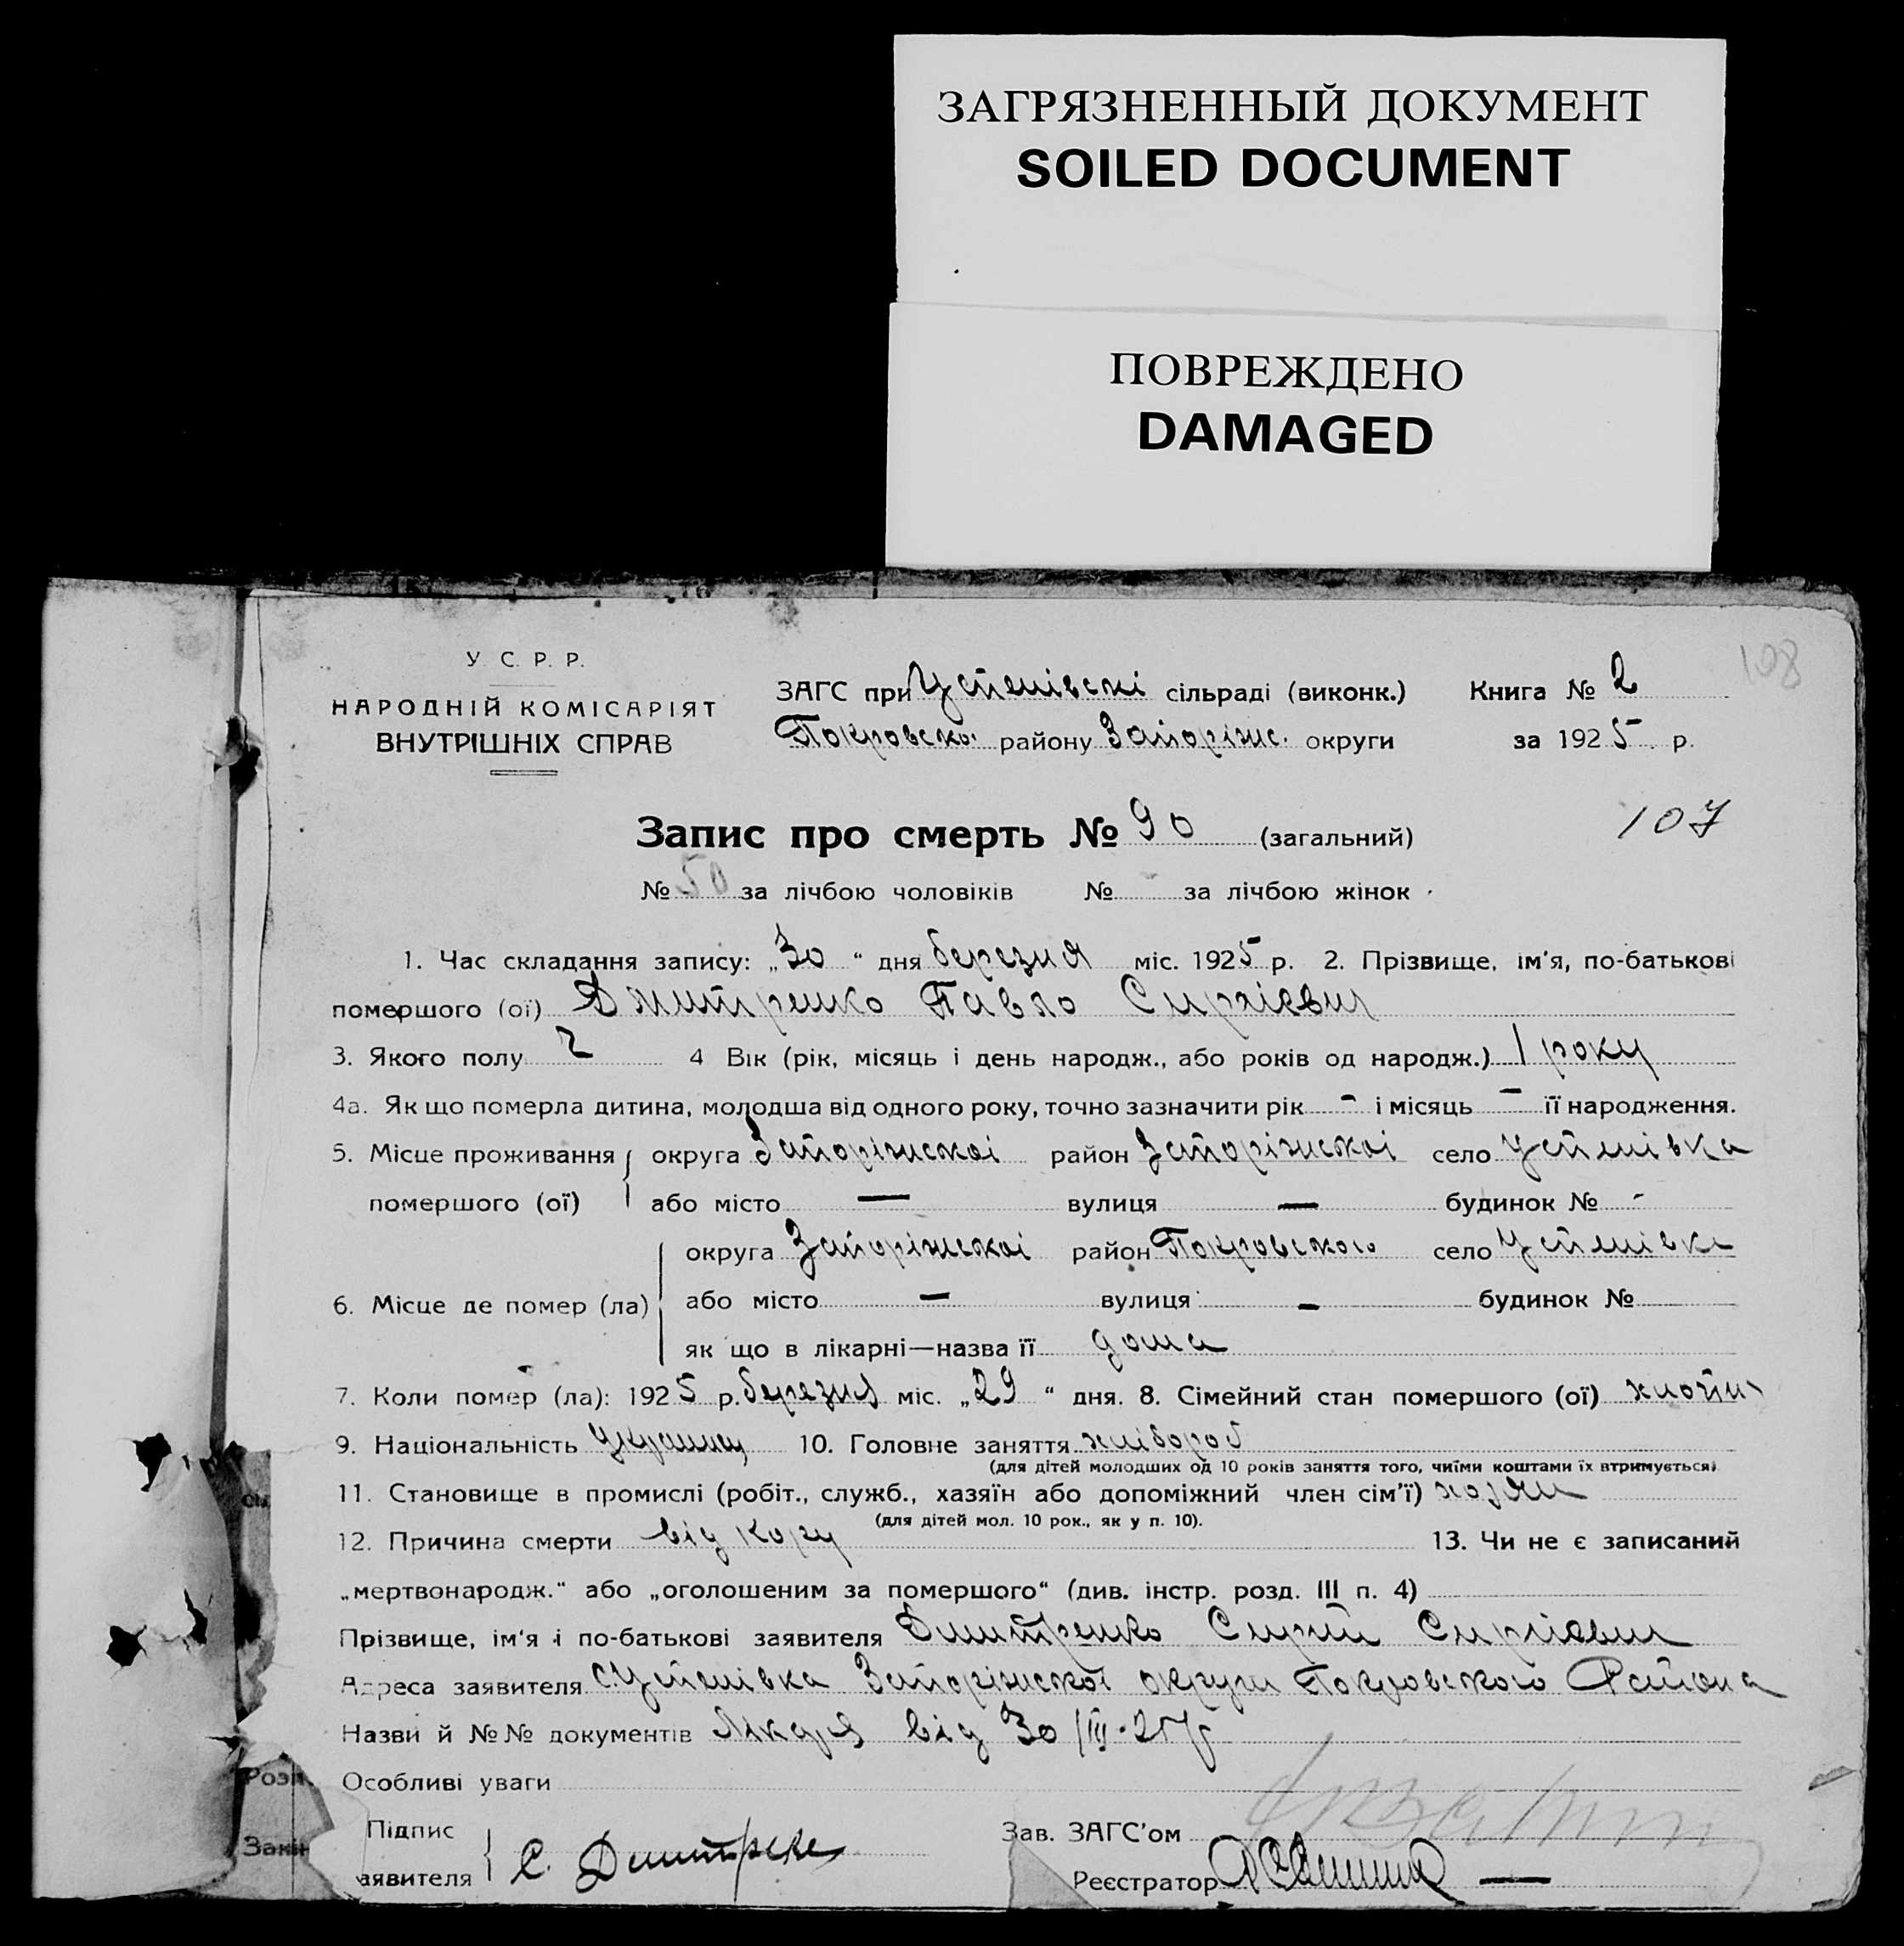 ЗАГРЯЗНЕННЫЙ ДОКУМЕНТ
SOILED DOCUMENT
ПОВРЕЖДЕНО
DAMAGED
108
У. С. Р. Р.
НАРОДНІЙ КОМІСАРІЯТ
ВНУТРІШНІХ СПРАВ
ЗАГС при Успенівскі сільраді (виконк.) Книга № 2
Покровско. району Запоріжс. округи за 1925 р.
107
Запис про смерть № 90 (загальний)
№ 50 за лічбою чоловіків № - за лічбою жінок
1. Час складання запису: „30“ дня березня міс. 1925 р. 2. Прізвище, ім'я, по-батькові
помершого (ої) Дмитренко Павло Сиргієвич
3. Якого полу ч 4 Вік (рік, місяць і день народж., або років од народж.) 1 року
4а. Як що померла дитина, молодша від одного року, точно зазначити рік - і місяць - її народження.
5. Місце проживання округа Запоріжскої район Запоріжскої село Успенівка
помершого (ої) або місто — вулиця — будинок № -
округа Запоріжскої район Покровского село Успенівка
6. Місце де помер (ла) або місто — вулиця - будинок №
як що в лікарні—назва її дома
7. Коли помер (ла): 1925 р. березня міс. „29“ дня. 8. Сімейний стан помершого (ої)
9. Національність 10. Головне заняття хлібороб
(для дітей молодших од 10 років заняття того, чиїми коштами їх втримується)
11. Становище в промислі (робіт., служб., хазяїн або допоміжний член сім'ї) хозяин
(для дітей мол. 10 рок., як у п. 10).
12. Причина смерти від кору 13. Чи не є записаний
„мертвонародж.“ або „оголошеним за помершого“ (див. інстр. розд. III п. 4)
Прізвище, ім'я і по-батькові заявителя Дмитренко Сиргій Сиргієвич
Адреса заявителя с. Успенівка Запоріжскої округи Покровского Района
Назви й №№ документів Лікаря від 30/III-25 р
Розп.
Особливі уваги
Підпис
Зав. ЗАГС'ом
Закін
С. Дмитренко
аявителя
Реєстратор —